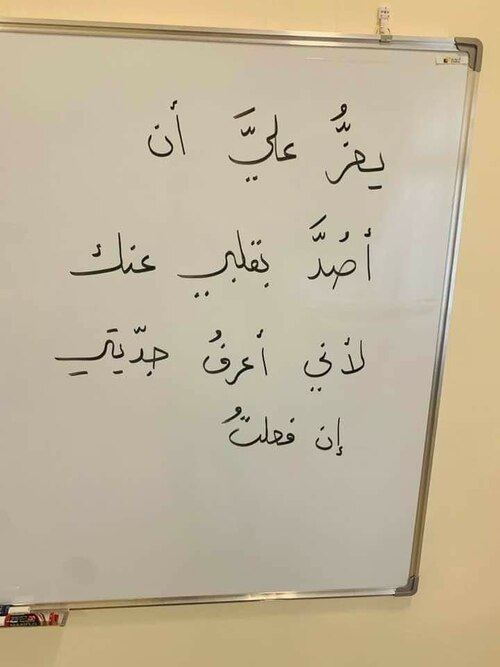 يعزُّ عليَّ أن
أصُدَّ بقلبي عنك
لأني أعرفُ جدّيتي
إن فعلتُ